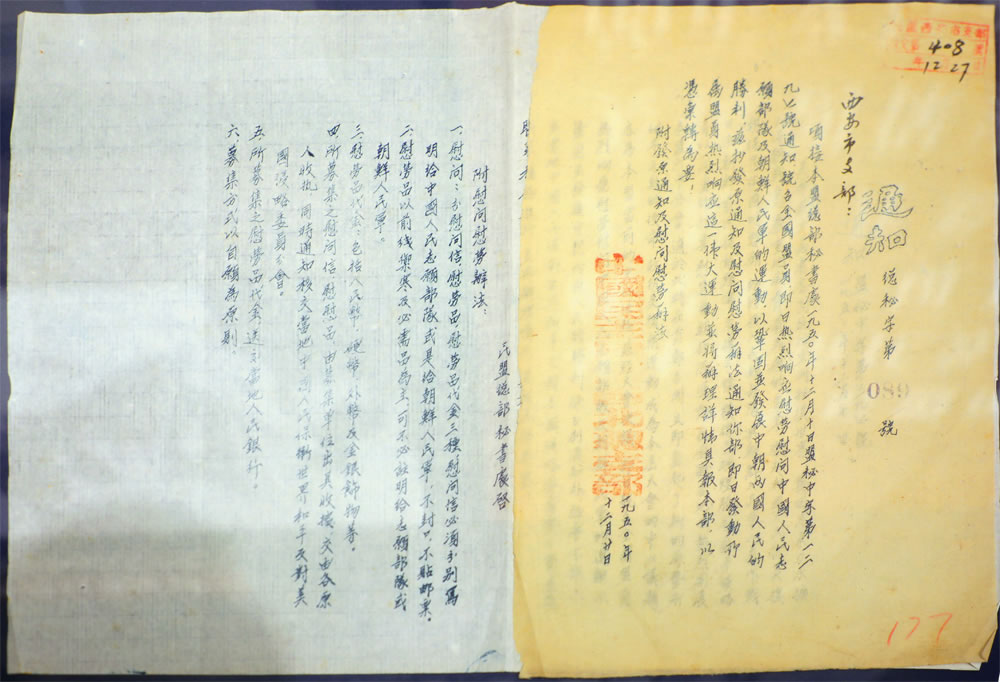 408
12 27
通知 總秘字第 089 號
西安市支部：
頃接本盟總部秘書處一九五〇年十二月十日盟秘中字第一二
九七號通知號召全國盟員即日熱烈响应慰劳慰问中國人民志
願部隊及朝鮮人民軍的運動以鞏固並發展中朝两國人民的
勝利 茲抄發原通知及慰问慰勞辦法通知你部即日發動所
属盟員热烈响应這一偉大運動並將辦理詳情具報本部 以
憑彙轉為要，
附發原通知及慰问慰勞辦法
中國民主同盟 支部
一九五〇年
十二月廿日
民盟總部秘書處啓
附慰问慰勞辦法：
一、慰问：分慰问信、慰劳品、慰劳品代金三種慰问信必須分别寫
明给中國人民志願部隊或是给朝鮮人民軍，不封口，不貼邮票。
二、慰劳品以前线禦寒及必需品為主，可不必註明给志願部隊或
朝鮮人民軍。
三、慰劳品代金：包括人民幣、硬幣、外幣及金銀飾物等。
四、所募集之慰问信、慰劳品，由募集單位出具收據，交由各原
人收执，同時通知核交當地中國人民保衛世界和平反對美
國侵略委員分會。
五、所募集之慰劳品代金送交當地人民銀行。
六、募集方式以自願為原则。
177